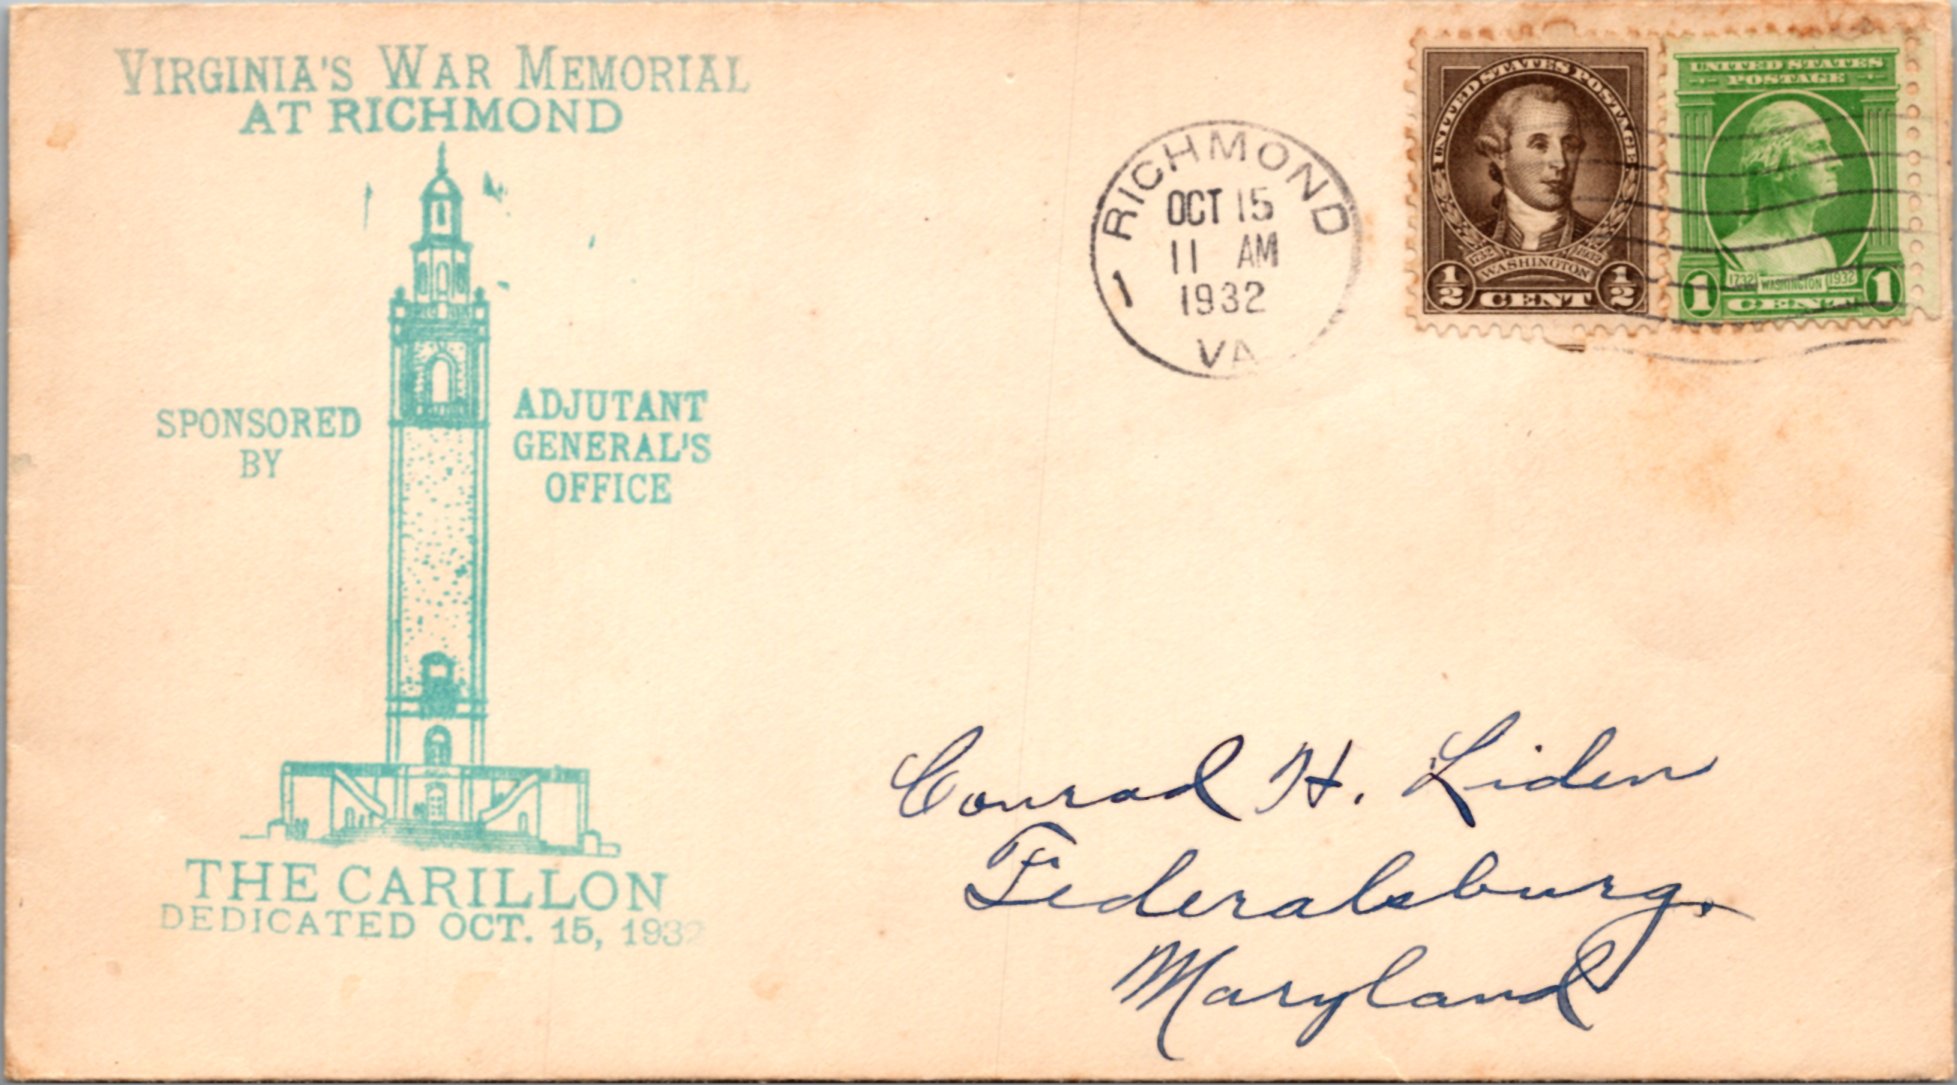 VIRGINIA'S WAR MEMORIAL
AT RICHMOND
SPONSORED
BY
ADJUTANT
GENERAL'S
OFFICE
THE CARILLON
DEDICATED OCT. 15, 1932
RICHMOND
OCT 15
11 AM
1932
VA
1
UNITED STATES POSTAGE
1732 WASHINGTON 1932
1/2 CENT 1/2
UNITED STATES
POSTAGE
1732 WASHINGTON 1932
1 CENT 1
Conrad H. Liden
Federalsburg,
Maryland